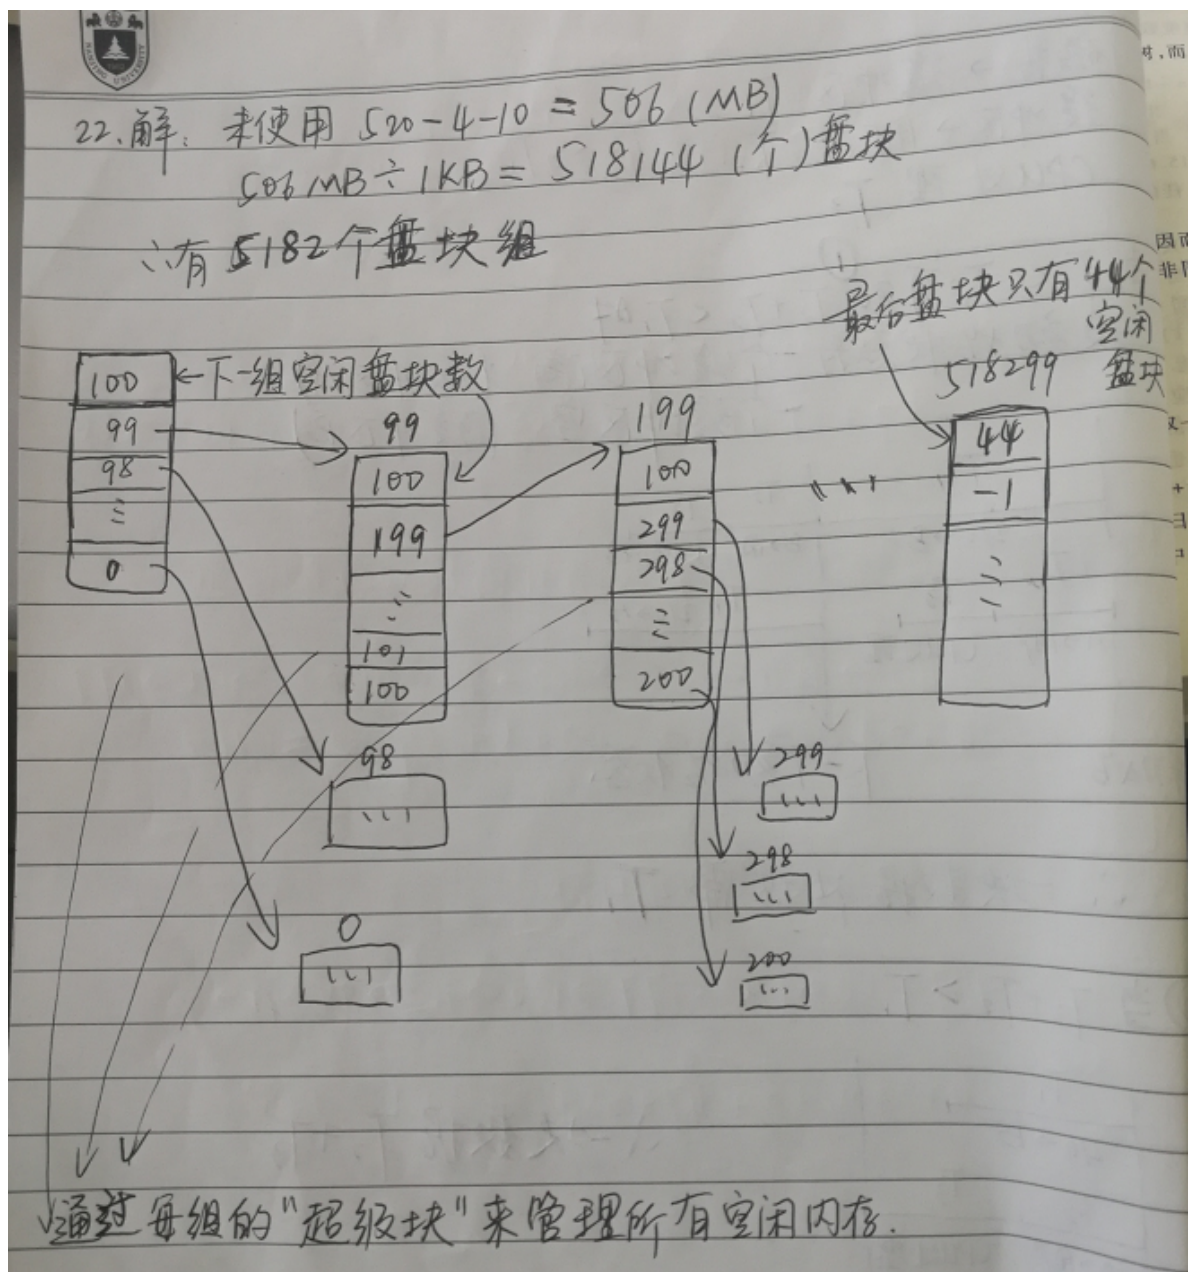 22.解: 未使用 520-4-10 = 506 (MB)
506 MB ÷ 1KB = 518144 (个) 盘块
∴有 5182个盘块组
最后盘块只有44个
空闲
盘块
100 ←下一组空闲盘块数
99
98
0
99
100
199
101
100
199
100
299
298
200
...
518299
44
-1
98
...
0
...
299
...
298
...
200
...
通过每组的"超级块"来管理所有空闲内存.